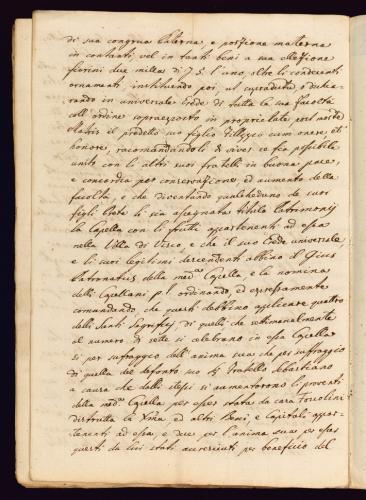 di sua congrua Paterna, e porzione materna
in contanti, vel in tanti beni a sua elezione
fiorini due milla di 75. l'uno, oltre li condecenti
ornamenti, instituendo poi, ut supradutus, e dichia-
rando in universale Erede di tutta la sua facoltà
coll ordine sopraesposto in proprietate post mortem
Matris il predetto suo figlio cum onere, et
honore, racomandandoli di viver se sia possibile
uniti con li altri suoi fratelli in buona pace,
e concordia per conservazione, ed aumento della
facoltà, e che diventando qualcheduno de suoi
figli Prete li sia assegnata titulo Patrimonij
la Capella con li frutti appartenenti ad essa
nella Villa di Visco, e che il suo Erede universale,
e li suoi legitimi descendenti abbino il Gius
Patronatus della med.ma Capella, e la nomina
delli Capellani ordinando, ed espressamente
comandando, che questi debbino applicare quattro
delli Santi Sagrifizij, di quelli che settimanalmente
al numero di sette si celebrano in essa Capella
si per suffraggio dell'anima sua che per suffraggio
di quella del defonto suo Fratello Sebastiano
a causa che dalli stessi si aumentorono li proventi
della med.ma Capella per esser stata da cara
distrutta la Pma, ed altri Beni, e Capitali appar-
tenenti ad essa, e due per l'anima sua per esser
questi da lui stati accresciuti per beneficio del